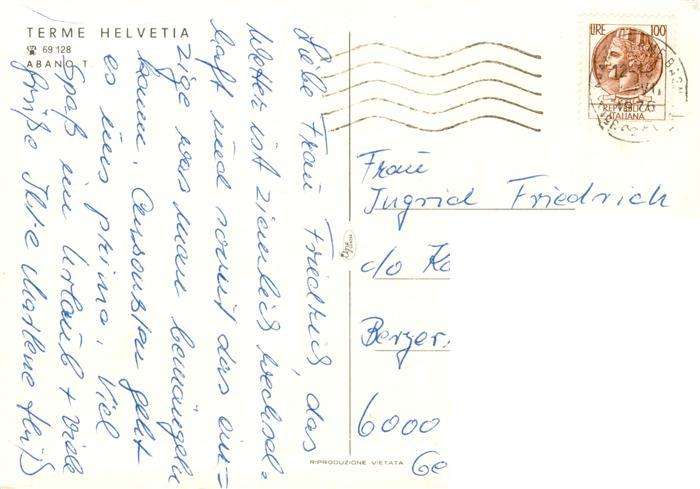 TERME HELVETIA
☎ 69 128
ABANO T.
Liebe Frau Friedrich, das
Wetter ist ziemlich wechsel-
haft und somit das ein=
zige was man bemängeln
kann. Ansonsten geht
es uns prima. Viel
Spaß im Urlaub + viele
Grüße Ihre Marlene
LIRE 100
REPUBBLICA
ITALIANA
Frau
Ingrid Friedrich
c/o Ko
Berger.
6000
Ge
RIPRODUZIONE VIETATA